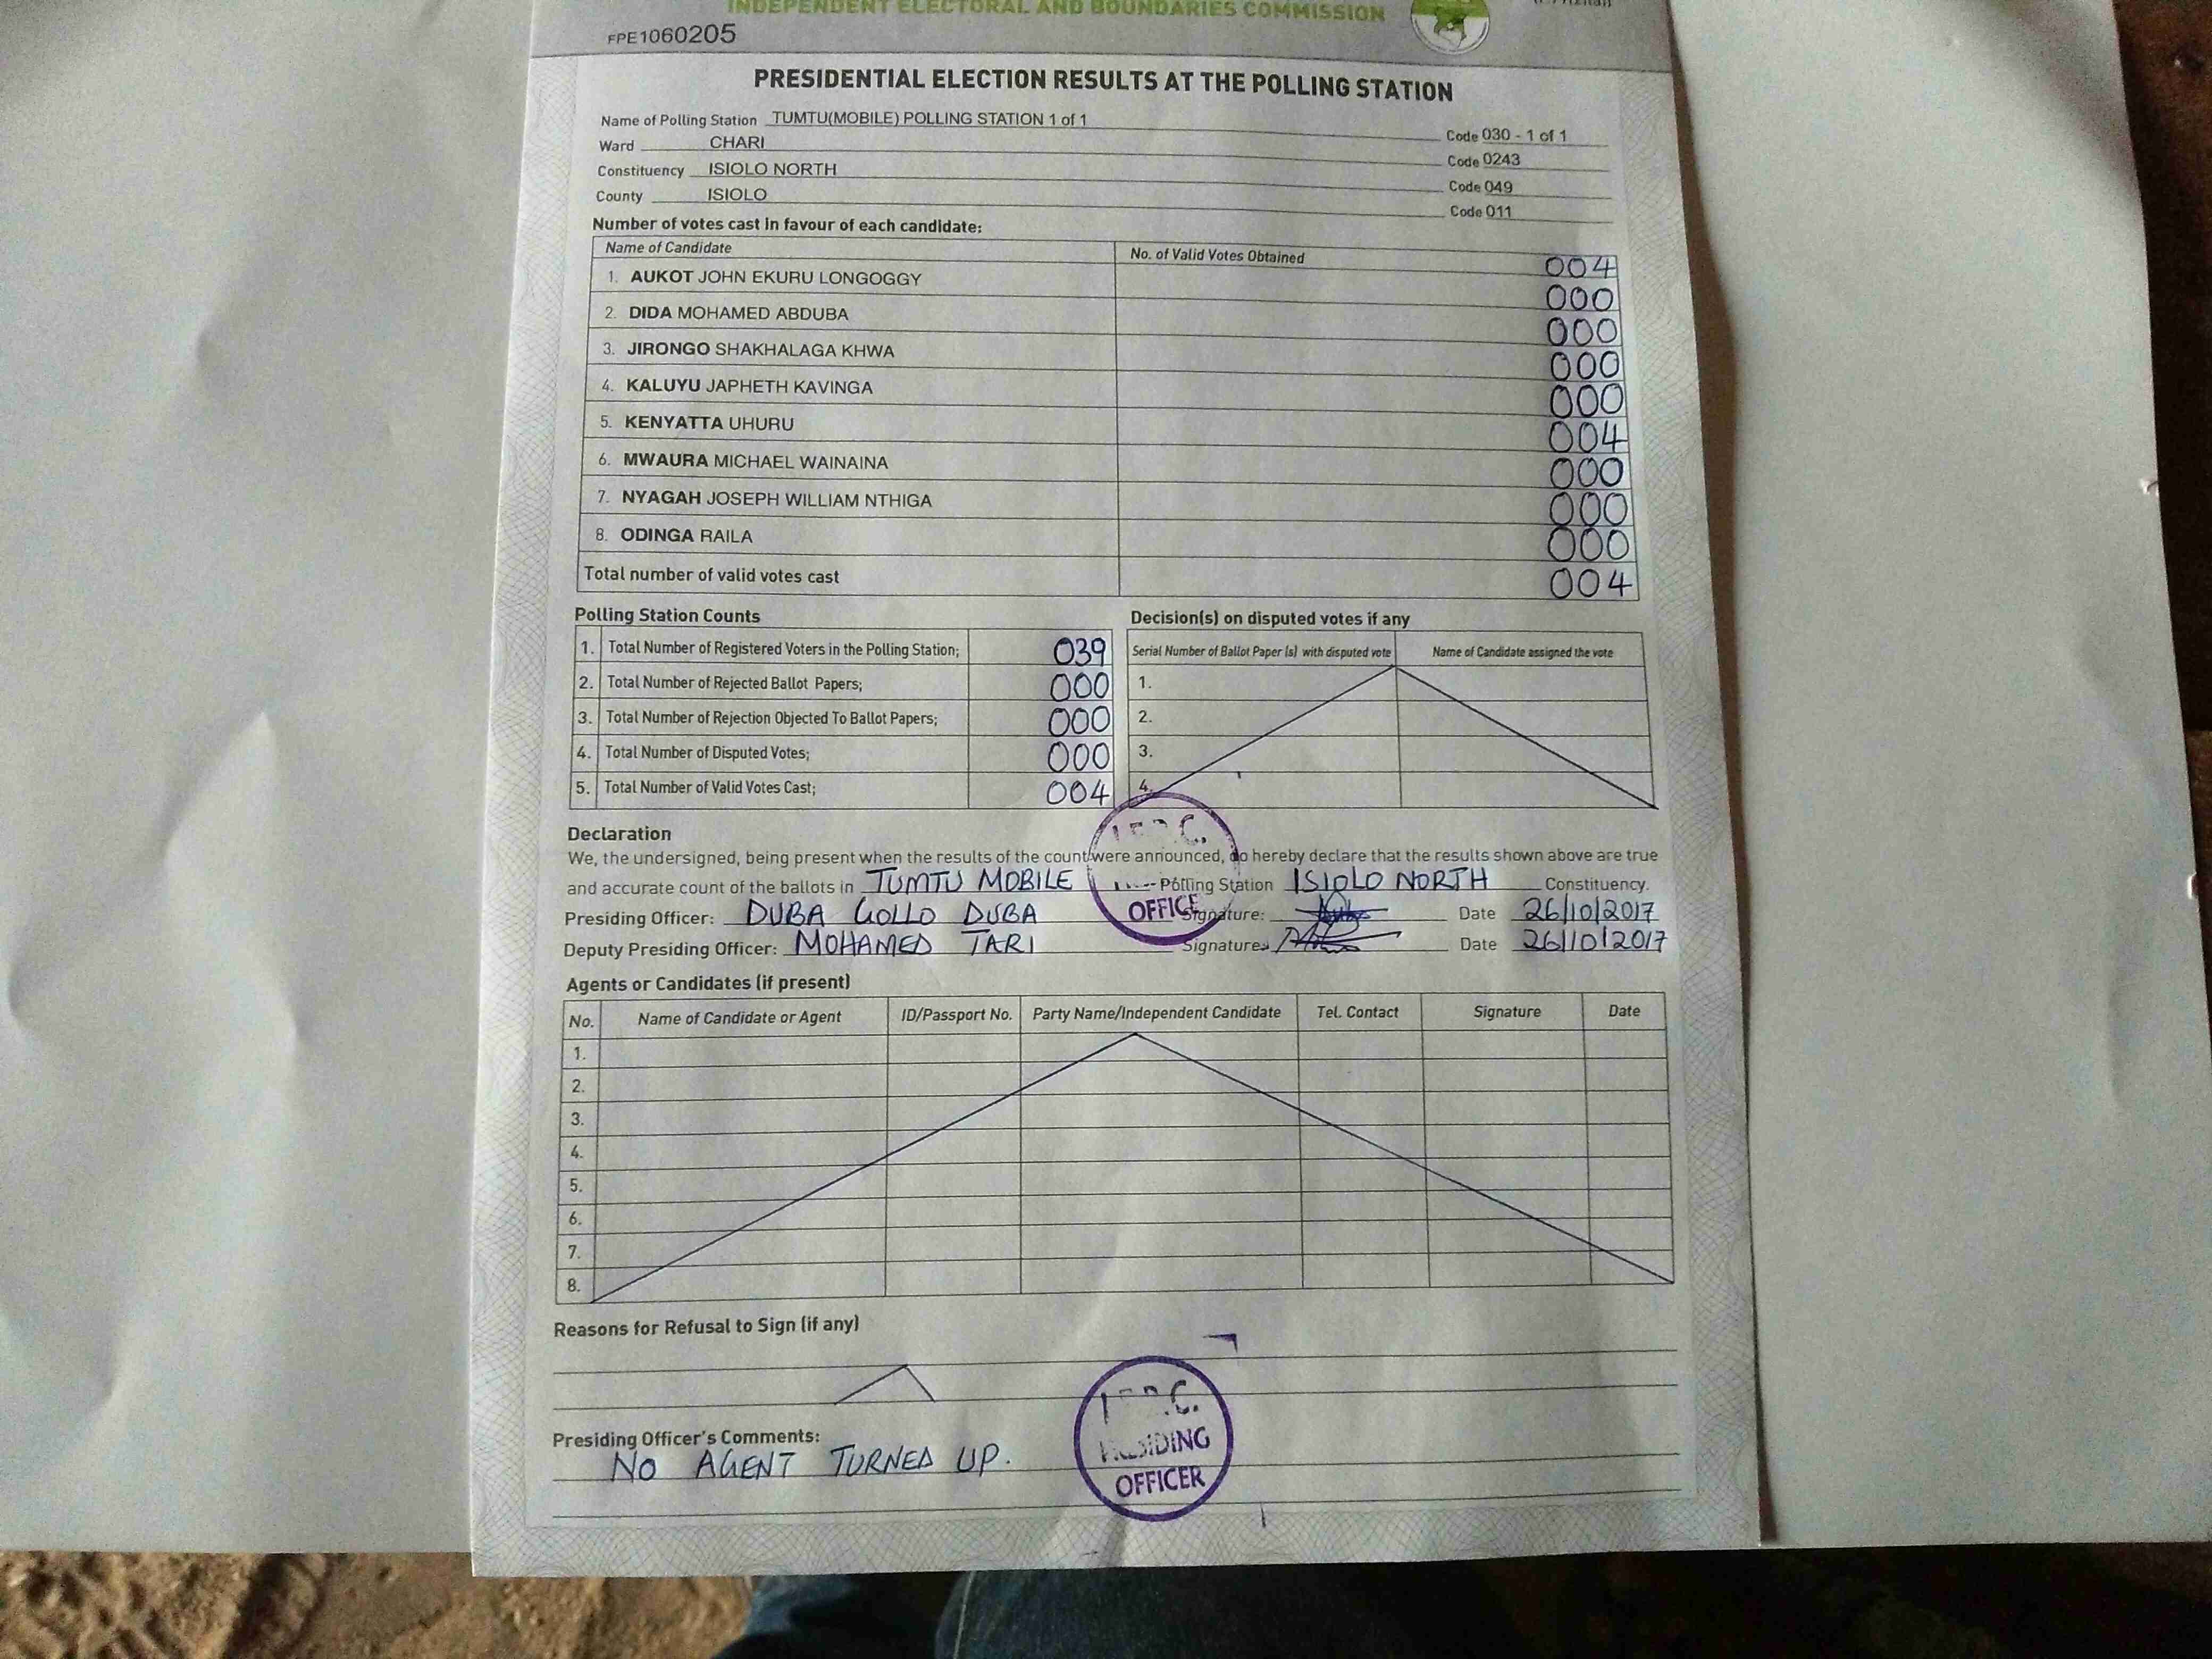 INDEPENDENT ELECTORAL AND BOUNDARIES COMMISSION
FPE1060205
PRESIDENTIAL ELECTION RESULTS AT THE POLLING STATION
Name of Polling Station TUMTU(MOBILE) POLLING STATION 1 of 1 Code 030 - 1 of 1
Ward CHARI Code 0243
Constituency ISIOLO NORTH Code 049
County ISIOLO Code 011
Number of votes cast in favour of each candidate:
Name of Candidate No. of Valid Votes Obtained 004
1. AUKOT JOHN EKURU LONGOGGY 000
2. DIDA MOHAMED ABDUBA 000
3. JIRONGO SHAKHALAGA KHWA 000
4. KALUYU JAPHETH KAVINGA 000
5. KENYATTA UHURU 004
6. MWAURA MICHAEL WAINAINA 000
7. NYAGAH JOSEPH WILLIAM NTHIGA 000
8. ODINGA RAILA 000
Total number of valid votes cast 004
Polling Station Counts
1. Total Number of Registered Voters in the Polling Station; 039
2. Total Number of Rejected Ballot Papers; 000
3. Total Number of Rejection Objected To Ballot Papers; 000
4. Total Number of Disputed Votes; 000
5. Total Number of Valid Votes Cast; 004
Decision(s) on disputed votes if any
Serial Number of Ballot Paper (s) with disputed vote Name of Candidate assigned the vote
1.
2.
3.
4.
Declaration
We, the undersigned, being present when the results of the count were announced, do hereby declare that the results shown above are true
and accurate count of the ballots in TUMTU MOBILE Polling Station ISIOLO NORTH Constituency.
Presiding Officer: DUBA GOLLO DUBA Signature: Date 26/10/2017
Deputy Presiding Officer: MOHAMED TARI Signature: Date 26/10/2017
Agents or Candidates (if present)
No. Name of Candidate or Agent ID/Passport No. Party Name/Independent Candidate Tel. Contact Signature Date
1.
2.
3.
4.
5.
6.
7.
8.
Reasons for Refusal to Sign (if any)
Presiding Officer's Comments:
NO AGENT TURNED UP.
PRESIDING
OFFICER